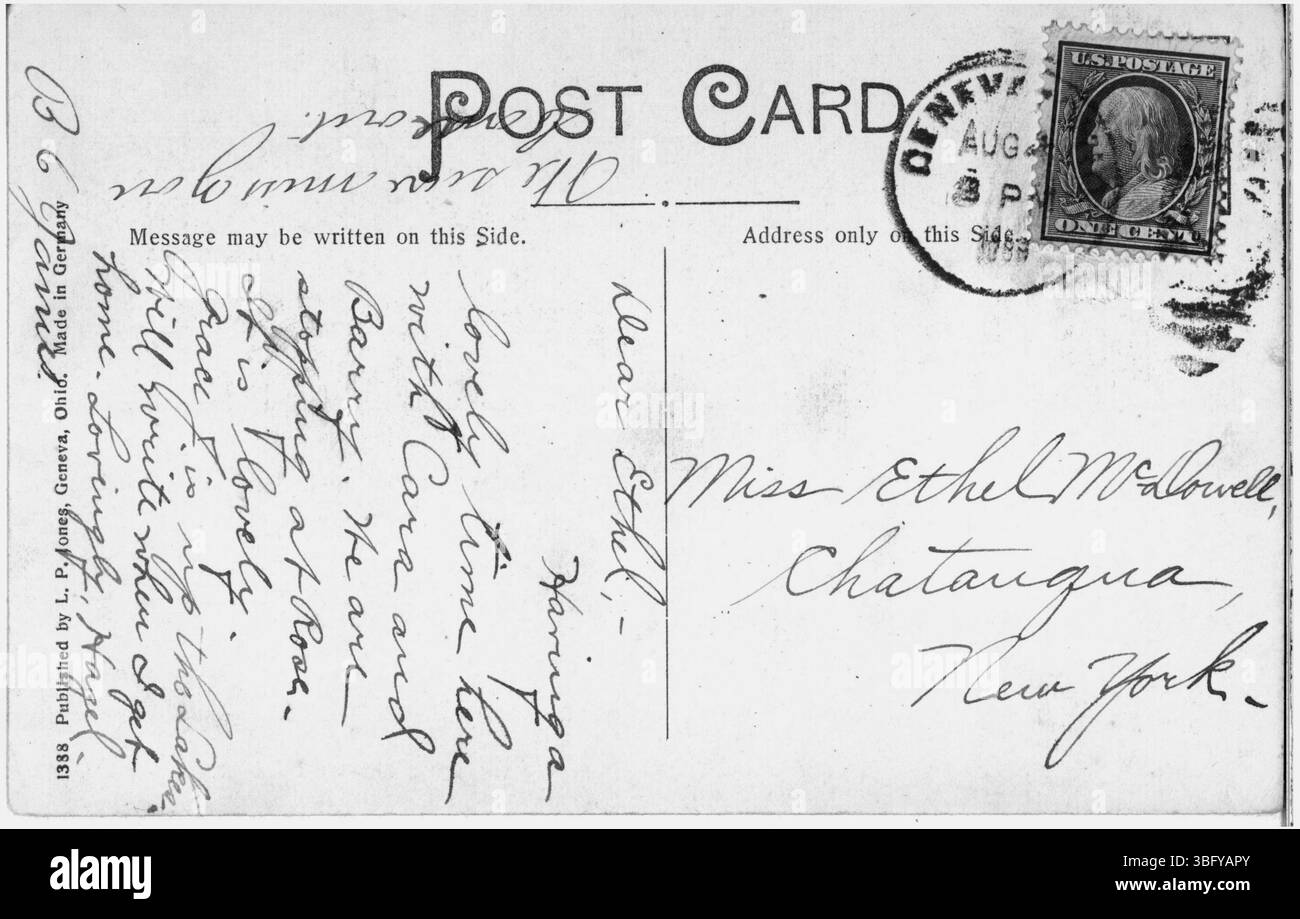 POST CARD
Message may be written on this Side.
Address only on this Side.
GENEVA
AUG
8 P
U.S. POSTAGE
ONE CENT
Dear Ethel,-
Having a
lovely time here
with Cara and
Barry. We are
stopping at Rose.
It is lovely.
Grace is up the Lake.
Will write when I get
home. Lovingly, Hazel.
We sure miss you
Miss Ethel McDowell,
Chatauqua,
New York.
1388 Published by L. P. Jones, Geneva, Ohio. Made in Germany
alamy
Image ID: 3BFYAPY
www.alamy.com